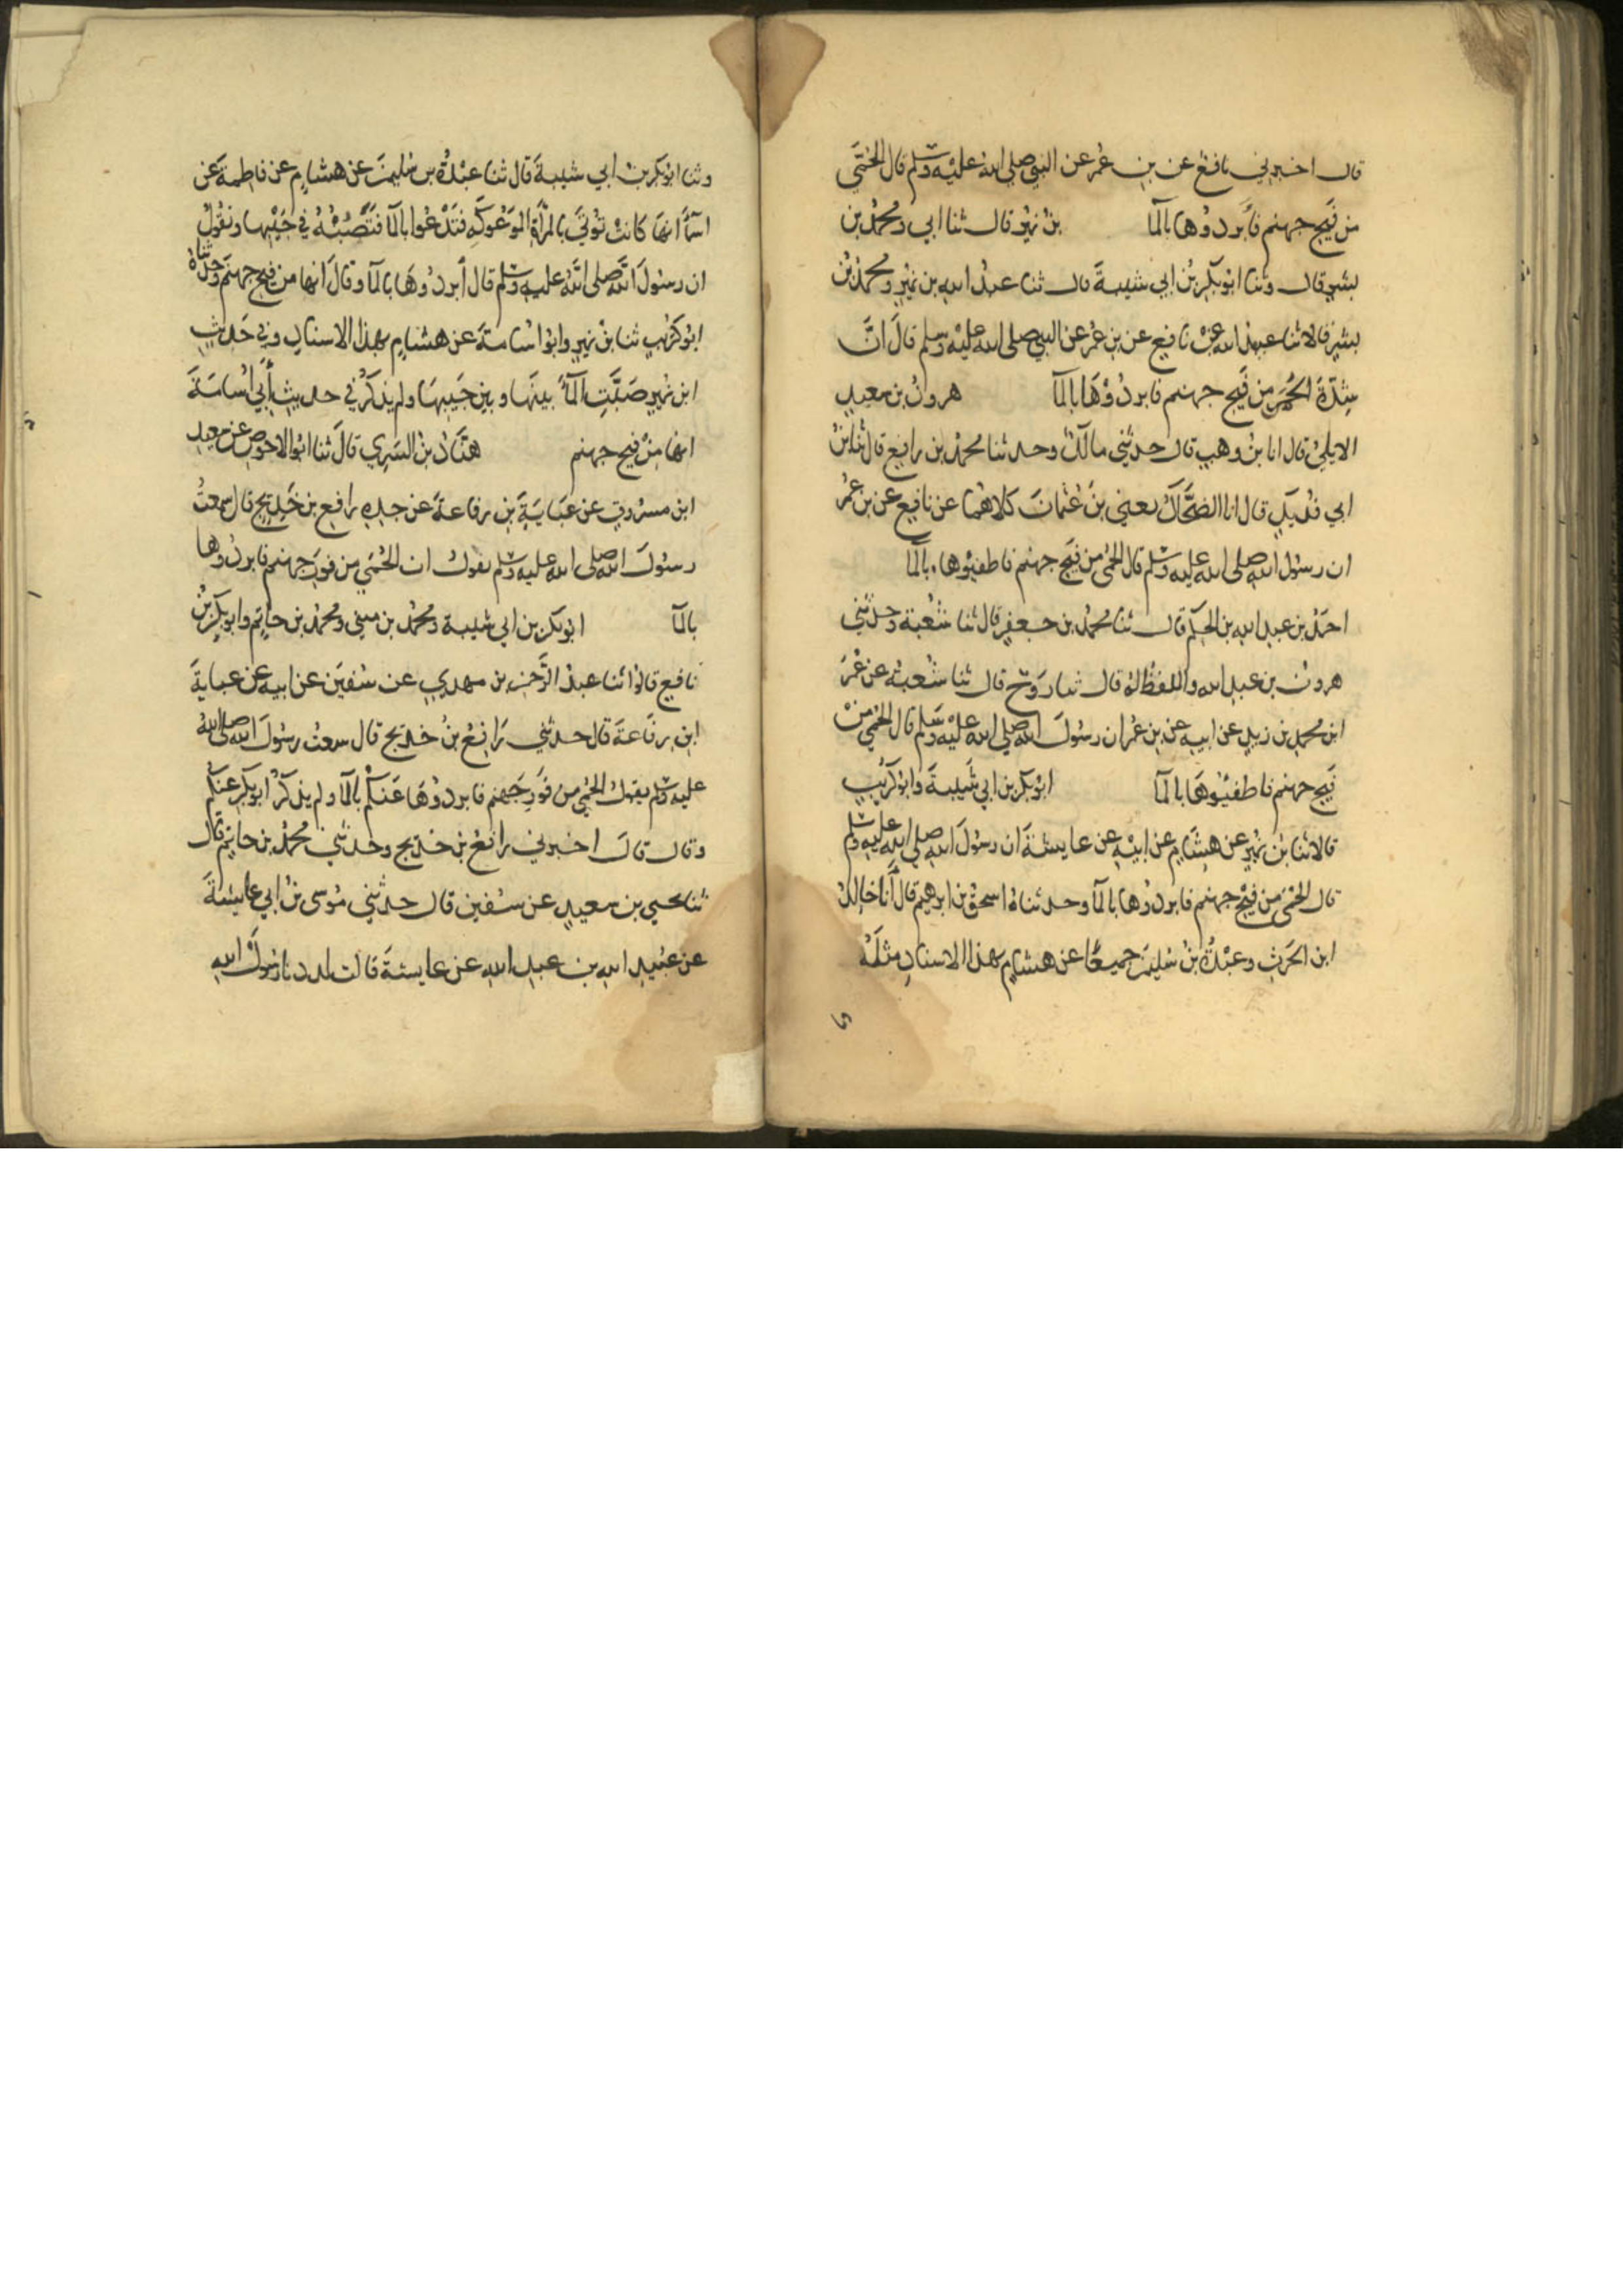 قال اخبرني نافع عن بن عمر عن النبي صلى الله عليه وسلم قال الحمى
من فيح جهنم فابردوها بالما بن نمير قال ثنا ابي ومحمد بن
بشر قال وثنا ابو بكر بن ابي شيبة قال ثنا عبد الله بن نمير ومحمد بن
بشر قالا ثنا عبيد الله عن نافع عن بن عمر عن النبي صلى الله عليه وسلم قال ان
شدة الحمى من فيح جهنم فابردوها بالما هرون بن سعيد
الايلي قال انا بن وهب قال حدثني مالك وحدثنا محمد بن رافع قال ثنا بن
ابي فديك قال انا الضحاك يعني بن عثمان كلاهما عن نافع عن بن عمر
ان رسول الله صلى الله عليه وسلم قال الحمى من فيح جهنم فاطفيوها بالما
احمد بن عبد الله بن الحكم قال ثنا محمد بن جعفر قال ثنا شعبة وحدثني
هرون بن عبد الله واللفظ له قال ثنا روح قال ثنا شعبة عن عمر
ابن محمد بن زيد عن ابيه عن بن عمر ان رسول الله صلى الله عليه وسلم قال الحمى من
فيح جهنم فاطفيوها بالما ابو بكر بن ابي شيبة وابو كريب
قالا ثنا بن نمير عن هشام عن ابيه عن عايشة ان رسول الله صلى الله عليه وسلم
قال الحمى من فيح جهنم فابردوها بالما وحدثناه اسحق بن ابرهيم قال انا خالد
ابن الحرث وعبدة بن سليمن جميعا عن هشام بهذا الاسناد مثله
وثنا ابو بكر بن ابي شيبة قال ثنا عبدة بن سليمن عن هشام عن فاطمة عن
اسما انها كانت توتى بالمراة الموعوكة فتدعوا بالما فتصبه في جيبها وتقول
ان رسول الله صلى الله عليه وسلم قال ابردوها بالما وقال انها من فيح جهنم وحدثناه
ابو كريب ثنا بن نمير وابو اسامة عن هشام بهذا الاسناد وفي حديث
ابن نمير صبت الما بينها وبين جيبها ولم يذكر في حديث ابي اسامة
انها من فيح جهنم هناد بن السري قال ثنا ابو الاحوص عن سعيد
ابن مسروق عن عباية بن رفاعة عن جده رافع بن خديج قال سمعت
رسول الله صلى الله عليه وسلم يقول ان الحمى من فور جهنم فابردوها
بالما ابو بكر بن ابي شيبة ومحمد بن مثني ومحمد بن حاتم وابو بكر بن
نافع قالوا ثنا عبد الرحمن بن مهدي عن سفين عن ابيه عن عباية
ابن رفاعة قال حدثني رافع بن خديج قال سمعت رسول الله صلى الله
عليه وسلم يقول الحمى من فور جهنم فابردوها عنكم بالما ولم يذكر ابو بكر عنكم
وقال قال اخبرني رافع بن خديج وحدثني محمد بن حاتم قال
ثنا يحيى بن سعيد عن سفين قال حدثني موسى بن ابي عايشة
عن عبيد الله بن عبد الله عن عايشة قالت لددنا رسول الله